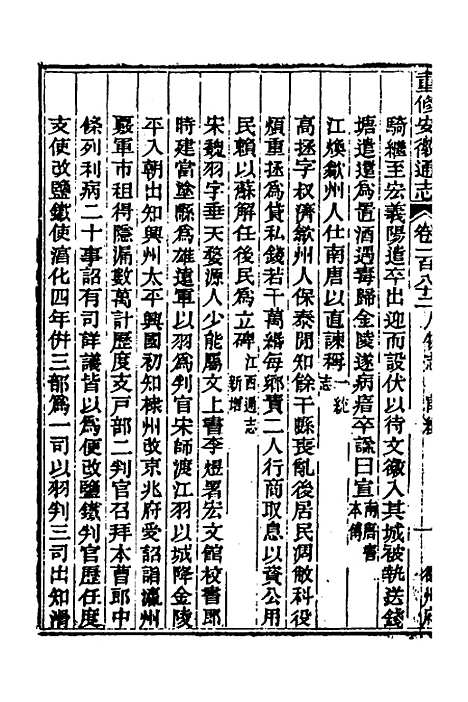 重修安徽通志 卷一百八十二 人物志
騎繼至宏義陽遣卒出迎而設伏以待文徽入其城被執送錢
塘遣還爲置酒遇毒歸金陵遂病瘖卒諡曰宣南唐書本傳
江煥歙州人仕南唐以直諫稱一統志
高拯字叔濟歙州人保泰閒知餘干縣喪亂後居民凋敝科役
煩重拯爲貸私錢若干萬緡每鄉賣二人行商取息以資公用
民賴以蘇解任後民爲立碑江西通志新增
宋魏羽字垂天婺源人少能屬文上書李煜署宏文館校書郎
時建當塗縣爲雄遠軍以羽爲判官宋師渡江羽以城降金陵
平入朝出知興州太平興國初知棣州改京兆府受詔詣瀛州
覈軍市租得隱漏數萬計歷度支戸部二判官召拜本曹郎中
條列利病二十事詔有司詳議皆以爲便改鹽鐵判官歷任度
支使改鹽鐵使淳化四年併三部爲一司以羽判三司出知滑